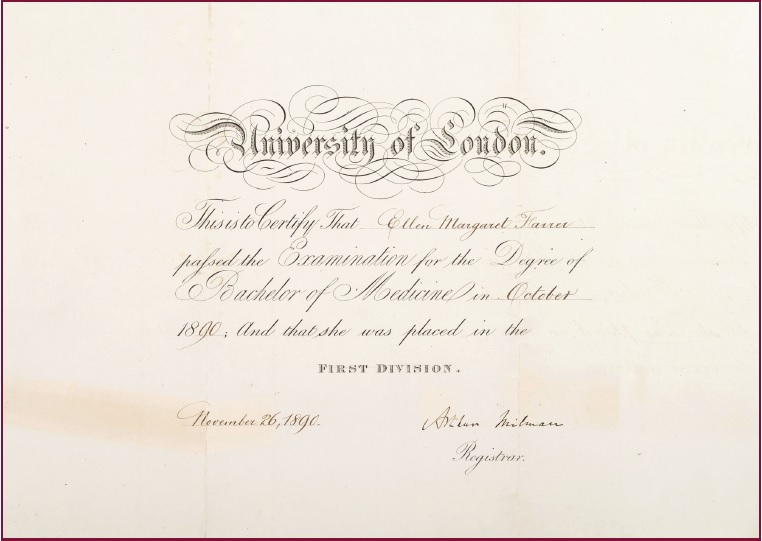 University of London.
This is to Certify That Ellen Margaret Farrer
passed the Examination for the Degree of
Bachelor of Medicine in October
1890; And that she was placed in the
FIRST DIVISION.
November 26, 1890.
Arthur Milman
Registrar.